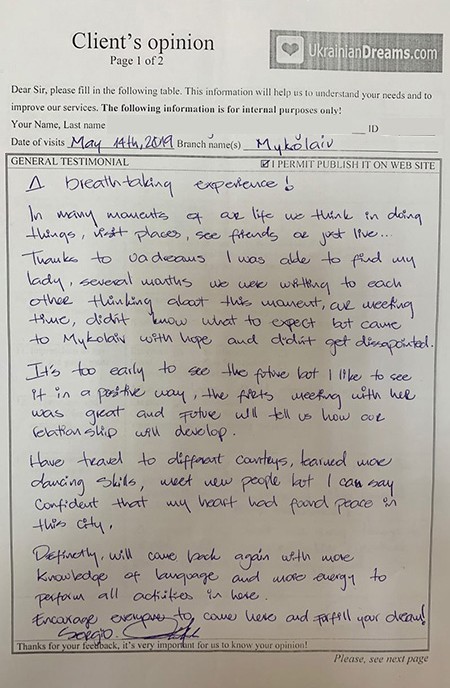 Client's opinion
Page 1 of 2
UkrainianDreams.com
Dear Sir, please fill in the following table. This information will help us to understand your needs and to
improve our services. The following information is for internal purposes only!
Your Name, Last name ID
Date of visits May 14th, 2019 Branch name(s) Mykolaiv
GENERAL TESTIMONIAL I PERMIT PUBLISH IT ON WEB SITE
A breathtaking experience!
In many moments of our life we think in doing
things, visit places, see friends or just live...
Thanks to uadreams I was able to find my
lady, several months we were writting to each
other thinking about this moment, our meeting
time, didn't know what to expect but came
to Mykolaiv with hope and didn't get dissapointed.
It's too early to see the future but I like to see
it in a positive way, the firts meeting with her
was great and future will tell us how our
relationship will develop.
Have travel to different countrys, learned more
dancing skills, meet new people but I can say
confident that my heart had found peace in
this city.
Definetly, will came back again with more
knowledge of language and more energy to
perform all activities in here.
Encourage everyone to come here and fulfill your dream!
Sergio.
Thanks for your feedback, it's very important for us to know your opinion!
Please, see next page